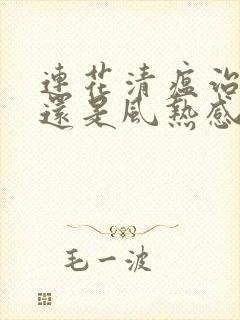 連花清瘟治
還是風熱感
毛一波